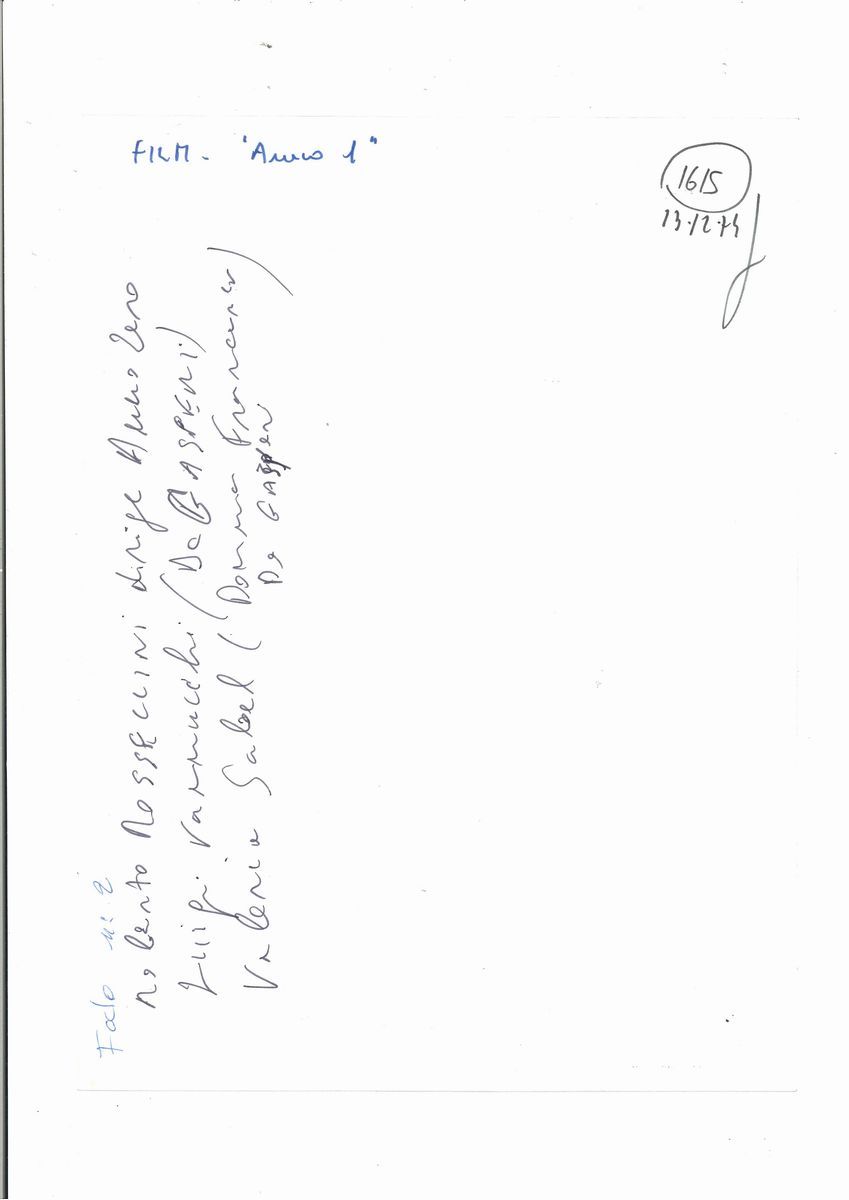 FILM - "Anno 1"
1615
13.12.74
Foto n: 2
Roberto Rossellini dirige Anno Zero
Luigi Vannucchi (De GASPERI)
Valeria Sabel (Donna Francesca)
De GASPERI